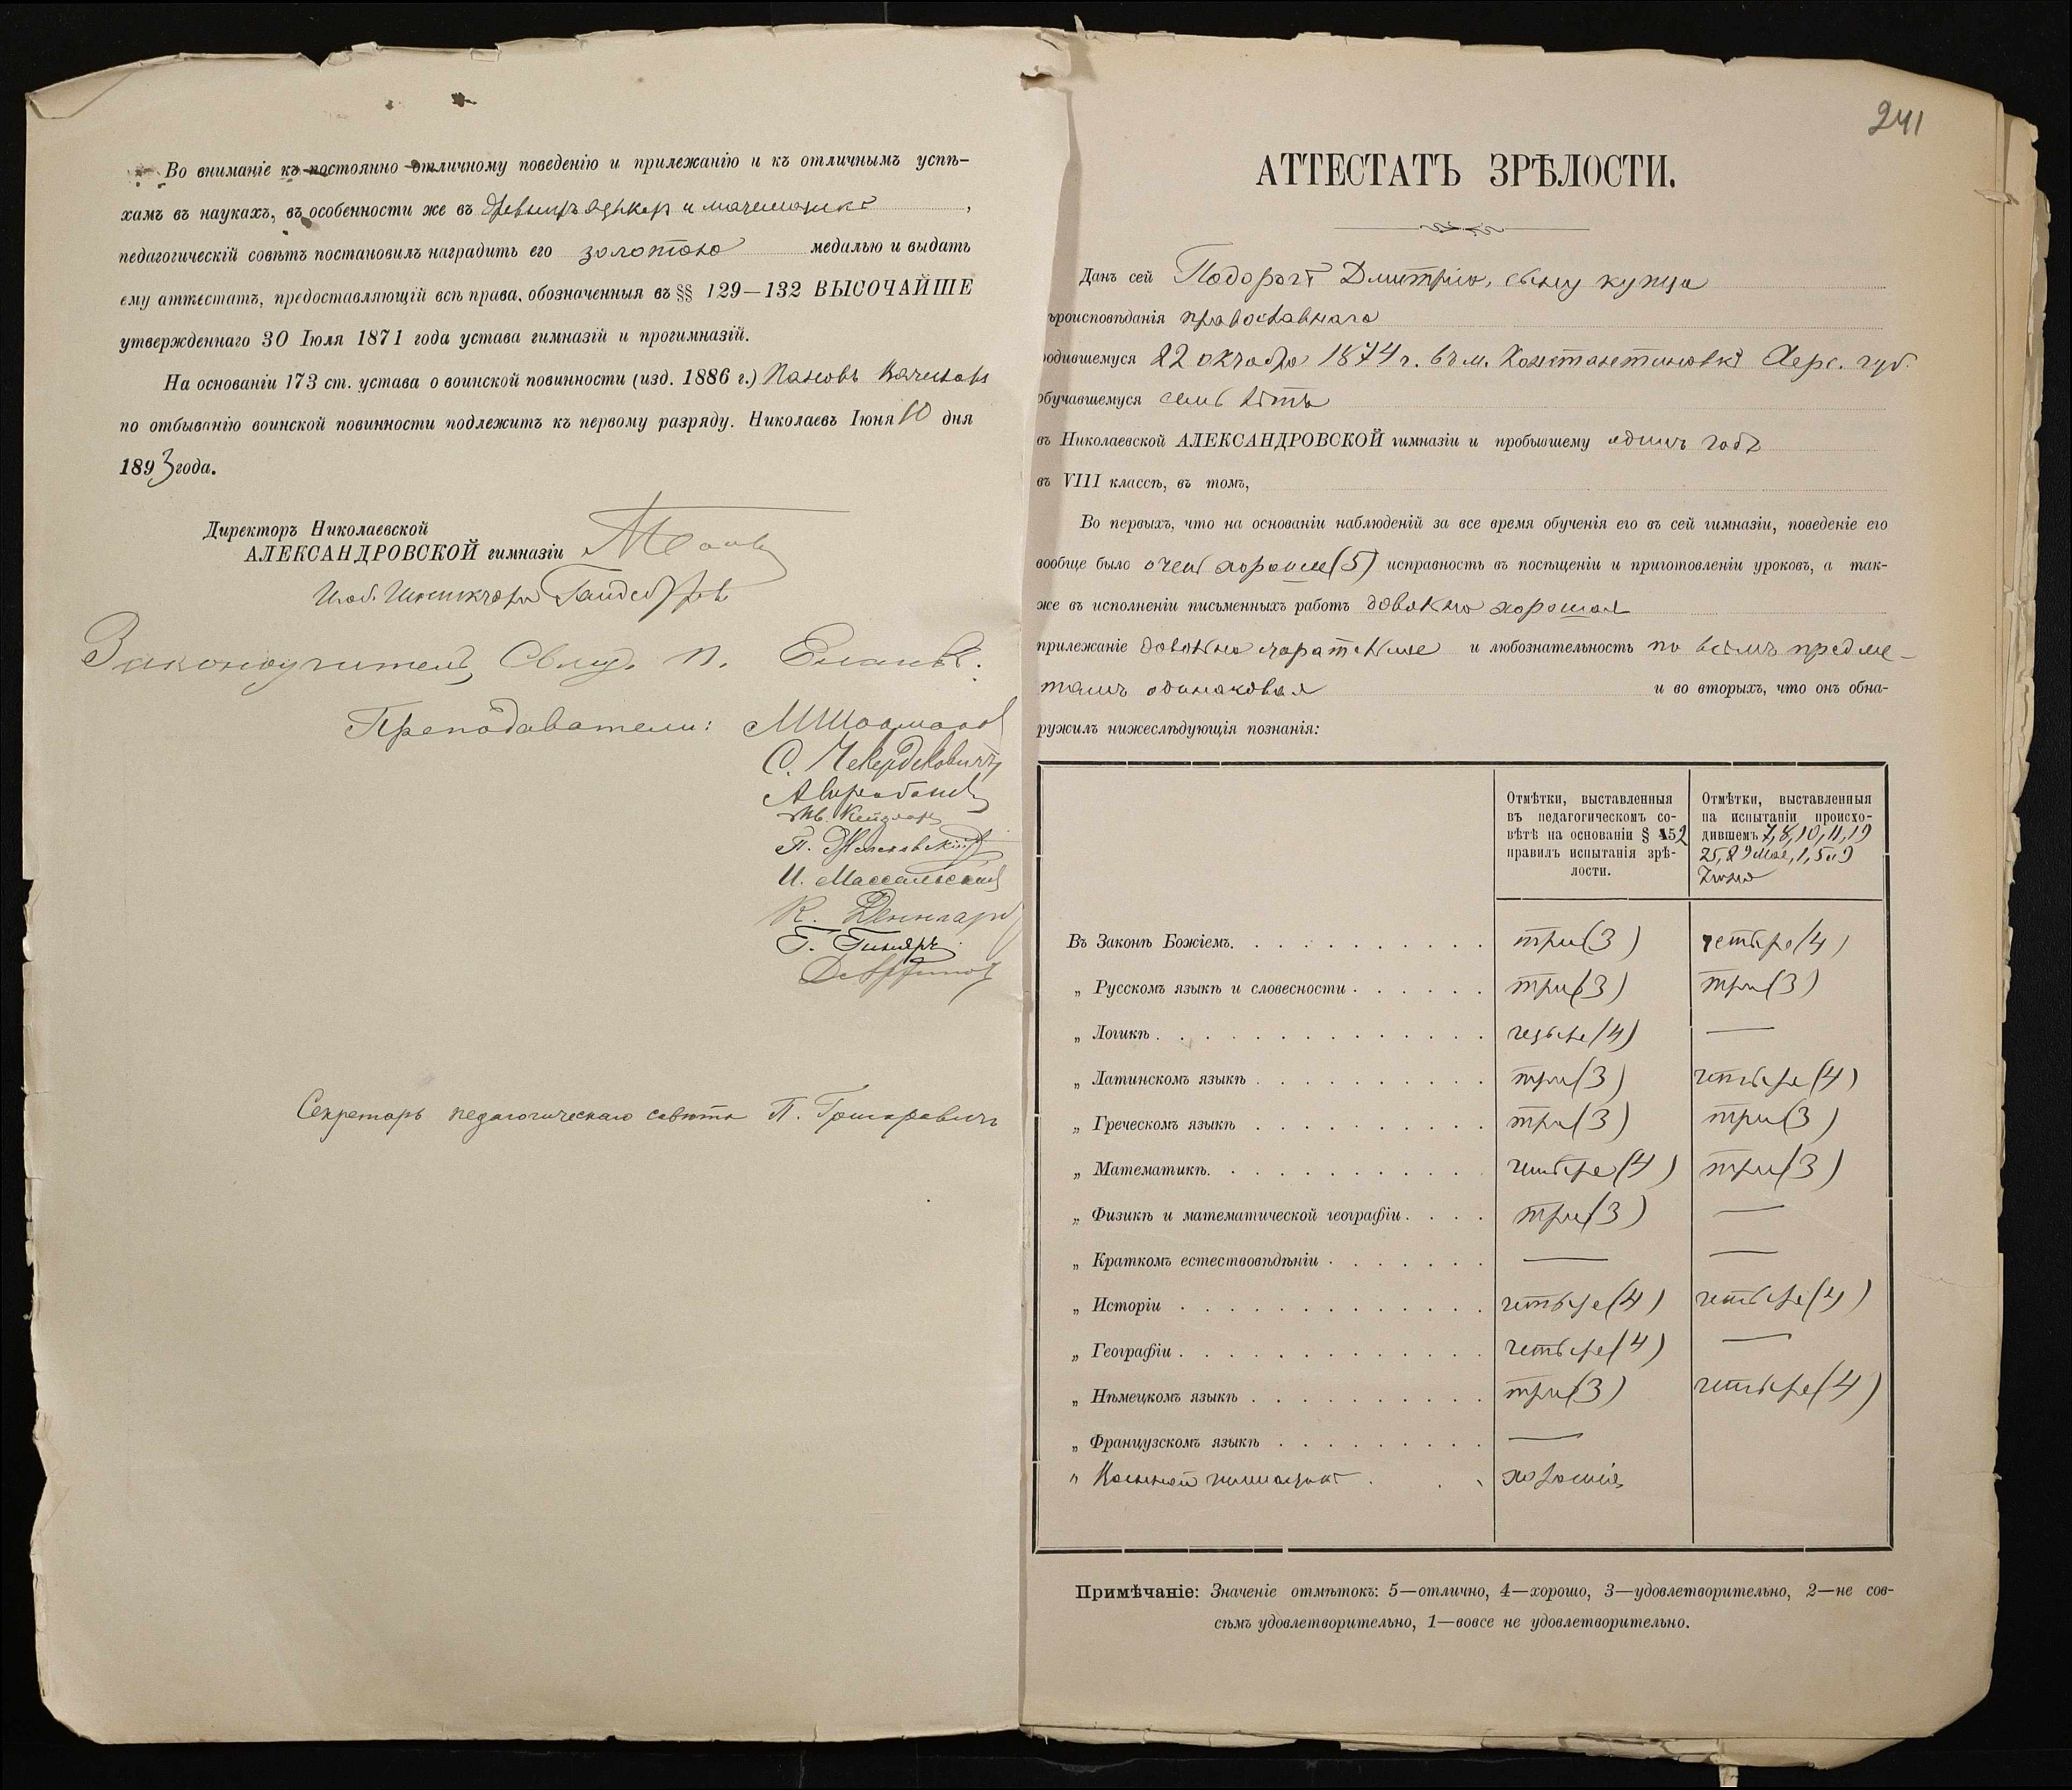 Во вниманіе къ постоянно отличному поведенію и прилежанію и къ отличнымъ успѣ-
хамъ въ наукахъ, въ особенности же въ древнихъ языкахъ и математикѣ,
педагогическій совѣтъ постановилъ наградить его золотою медалью и выдать
ему аттестатъ, предоставляющій всѣ права, обозначенныя въ §§ 129—132 ВЫСОЧАЙШЕ
утвержденнаго 30 Іюля 1871 года устава гимназій и прогимназій.
На основаніи 173 ст. устава о воинской повинности (изд. 1886 г.) Пановъ
по отбыванію воинской повинности подлежитъ къ первому разряду. Николаевъ Іюня 10 дня
1893 года.
Директоръ Николаевской
АЛЕКСАНДРОВСКОЙ гимназіи
Законоучитель Свящ. П. Еланскій
Преподаватели:
И. Массальскій
Секретарь педагогическаго совѣта П.
241
АТТЕСТАТЪ ЗРѢЛОСТИ.
Данъ сей Дмитрію, сыну купца
ѣроисповѣданія православнаго
одившемуся 22 октября 1874 г. въ м. Константиновкѣ Херс. губ.
обучавшемуся семь лѣтъ
въ Николаевской АЛЕКСАНДРОВСКОЙ гимназіи и пробывшему одинъ годъ
въ VIII классѣ, въ томъ,
Во первыхъ, что на основаніи наблюденій за все время обученія его въ сей гимназіи, поведеніе его
вообще было очень хорошее (5) исправность въ посѣщеніи и приготовленіи уроковъ, а так-
же въ исполненіи письменныхъ работъ довольно хорошая
прилежаніе довольно старательное и любознательность по всѣмъ предме-
тамъ одинаковая и во вторыхъ, что онъ обна-
ружилъ нижеслѣдующія познанія:
Отмѣтки, выставленныя
въ педагогическомъ со-
вѣтѣ на основаніи § 52
правилъ испытанія зрѣ-
лости.
Отмѣтки, выставленныя
на испытаніи происхо-
дившемъ 7, 8, 10, 11, 19
25, 29 мая, 1, 5 и 9
Іюня
Въ Законѣ Божіемъ. три (3) четыре (4)
„ Русскомъ языкѣ и словесности три (3) три (3)
„ Логикѣ четыре (4) —
„ Латинскомъ языкѣ три (3) четыре (4)
„ Греческомъ языкѣ три (3) три (3)
„ Математикѣ. четыре (4) три (3)
„ Физикѣ и математической географіи три (3) —
„ Краткомъ естествовѣдѣніи — —
„ Исторіи четыре (4) четыре (4)
„ Географіи четыре (4) —
„ Нѣмецкомъ языкѣ три (3) четыре (4)
„ Французскомъ языкѣ —
„ гимнастикѣ хорошія
Примѣчаніе: Значеніе отмѣтокъ: 5—отлично, 4—хорошо, 3—удовлетворительно, 2—не сов-
сѣмъ удовлетворительно, 1—вовсе не удовлетворительно.